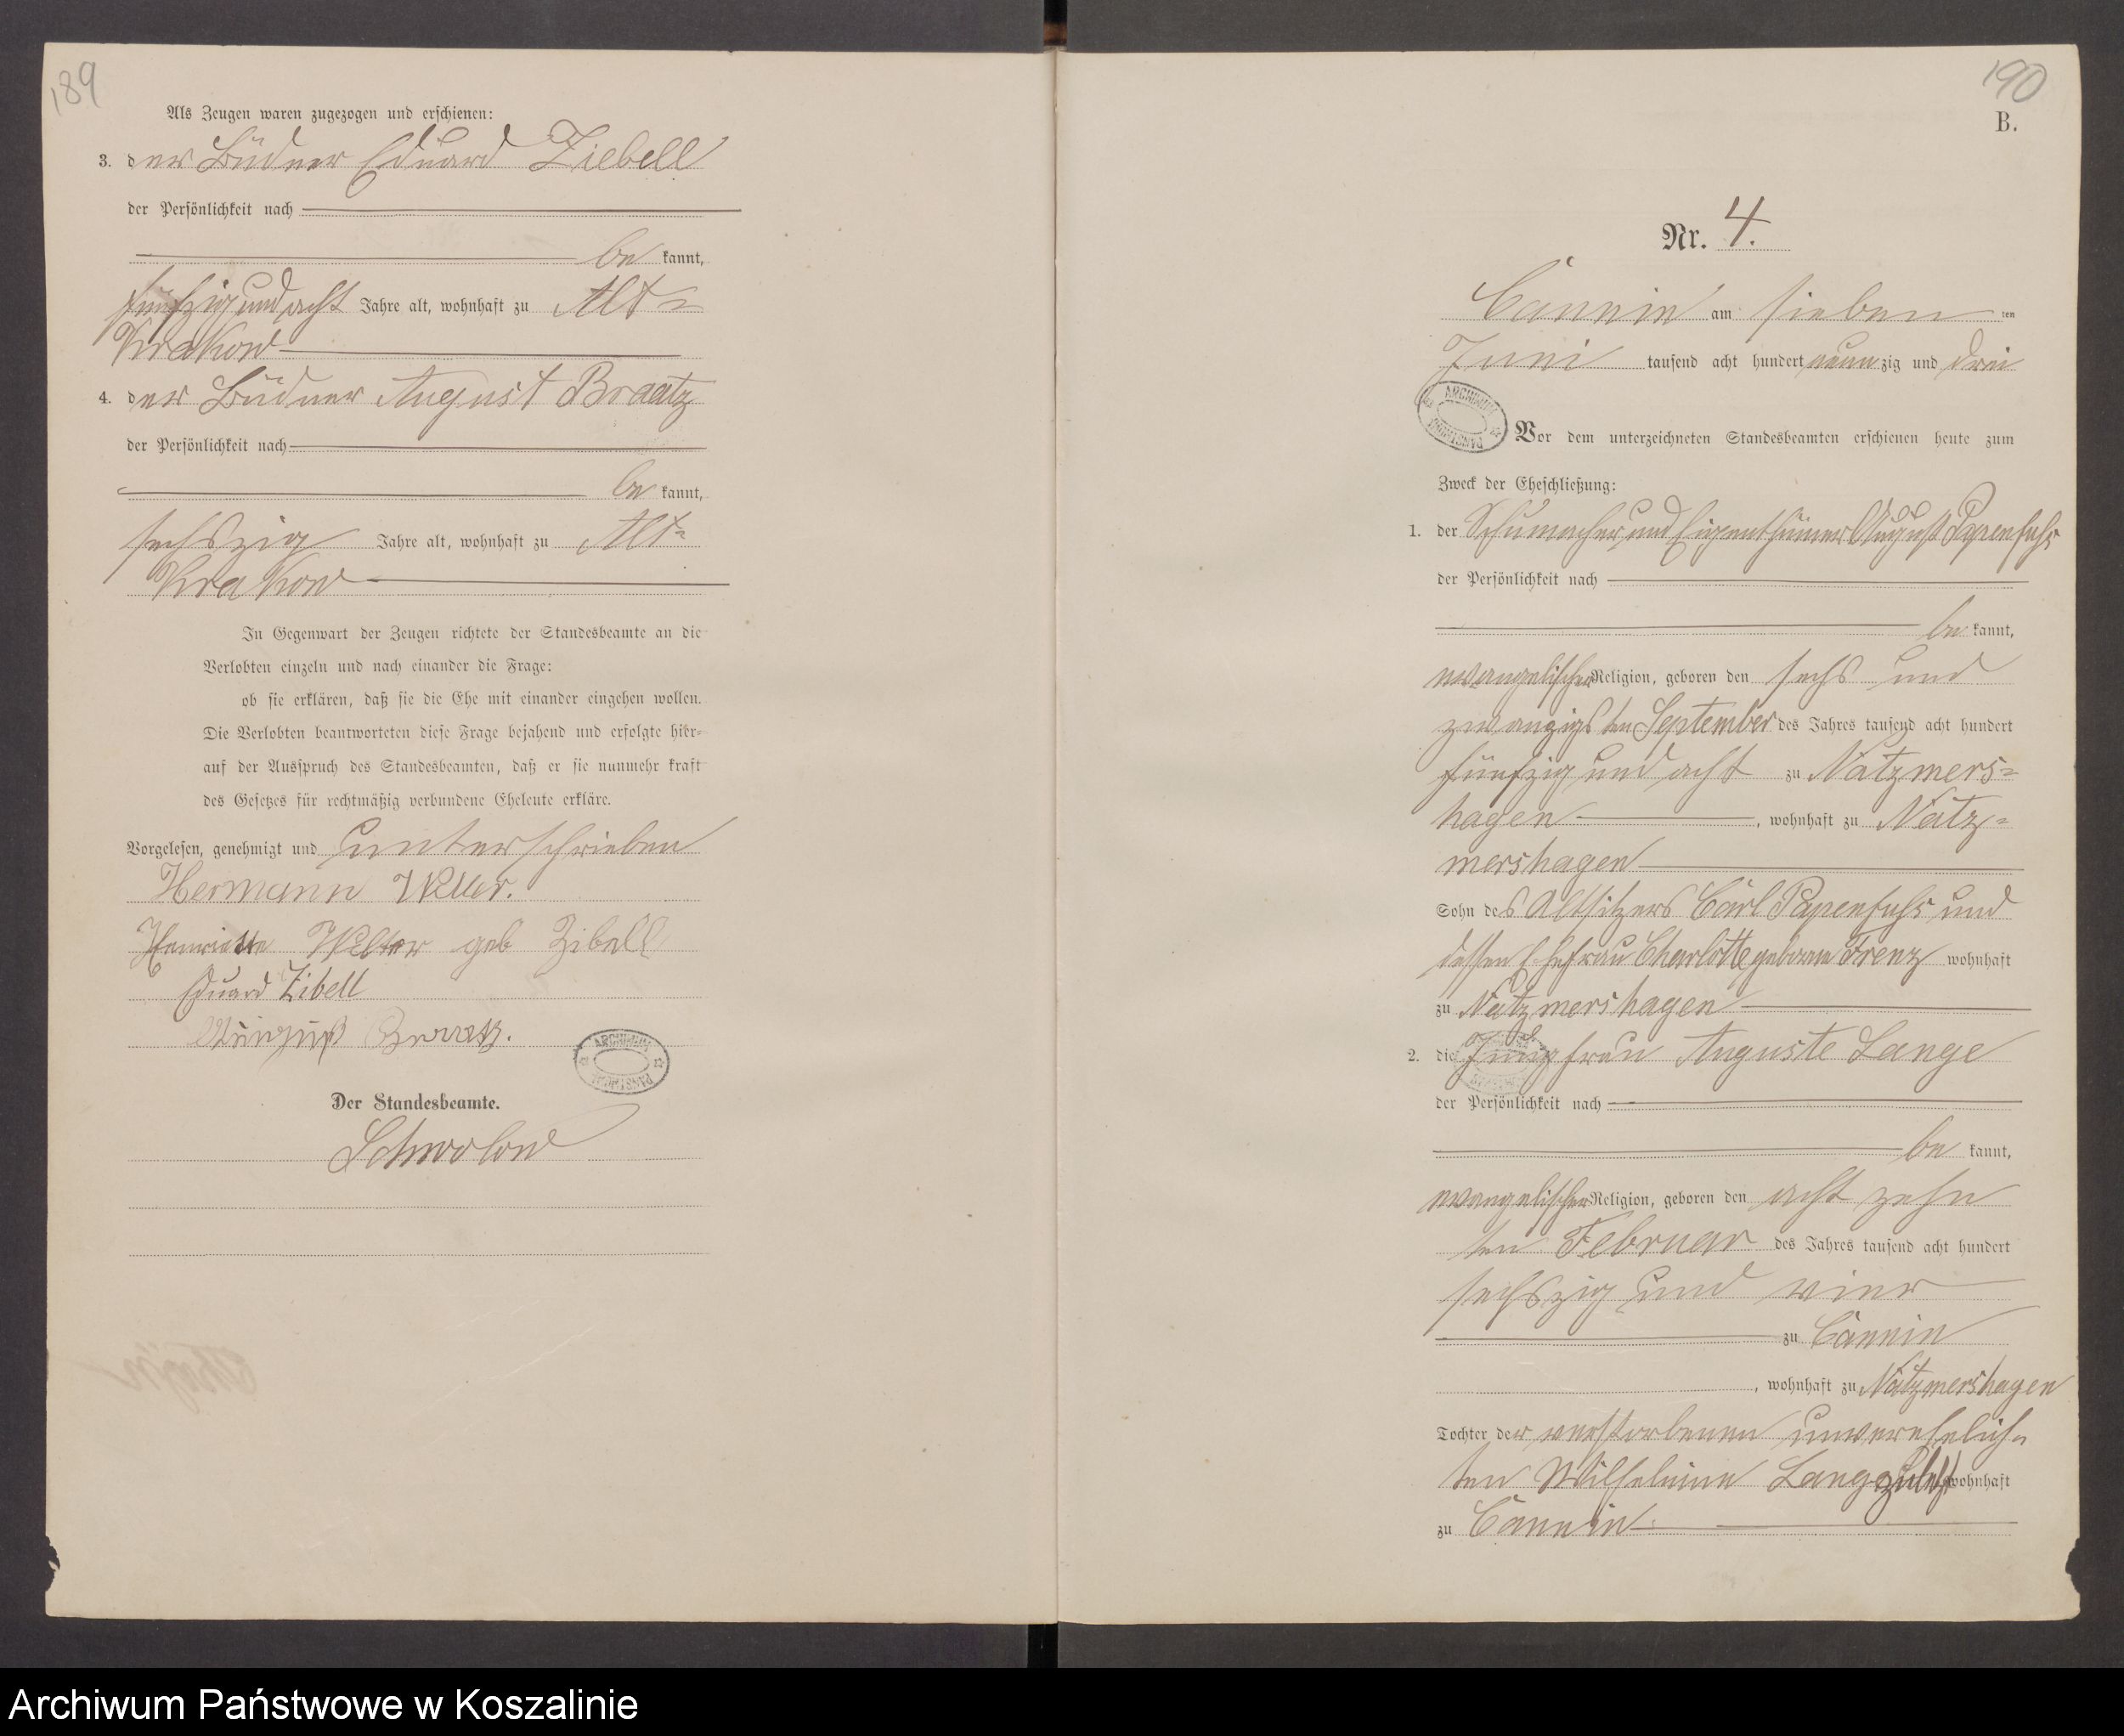 189
Als Zeugen waren zugezogen und erschienen:
3. der Büdner Eduard Ziebell
der Persönlichkeit nach
be kannt,
fünfzig und acht Jahre alt, wohnhaft zu Alt-
Krakow
4. der Büdner August Braatz
der Persönlichkeit nach
be kannt,
sechszig Jahre alt, wohnhaft zu Alt-
Krakow
In Gegenwart der Zeugen richtete der Standesbeamte an die
Verlobten einzeln und nach einander die Frage:
ob sie erklären, daß sie die Ehe mit einander eingehen wollen.
Die Verlobten beantworteten diese Frage bejahend und erfolgte hier-
auf der Ausspruch des Standesbeamten, daß er sie nunmehr kraft
des Gesetzes für rechtmäßig verbundene Eheleute erkläre.
Vorgelesen, genehmigt und unterschrieben
Hermann
Henriette geb Zibell
Eduard Zibell
August Braatz.
ARCHIWUM PAŃSTWOWE
Der Standesbeamte.
Schwolow
190
B.
Nr. 4.
Cannin am sieben ten
Juni tausend acht hundert neun zig und drei
ARCHIWUM PAŃSTWOWE
Vor dem unterzeichneten Standesbeamten erschienen heute zum
Zweck der Eheschließung:
1. der Schumacher und Eigenthümer August Papenfuhs
der Persönlichkeit nach
be kannt,
evangelischer Religion, geboren den sechs und
zwanzigsten September des Jahres tausend acht hundert
fünfzig und acht zu Natzmers-
hagen, wohnhaft zu Natz-
mershagen
Sohn des Altsitzers Carl Papenfuhs und
dessen Ehefrau Charlotte geborene Frenz wohnhaft
zu Natzmershagen
2. die Jungfrau Auguste Lange
der Persönlichkeit nach
be kannt,
evangelischer Religion, geboren den acht zehn
ten Februar des Jahres tausend acht hundert
sechszig und vier
zu Cannin
, wohnhaft zu Natzmershagen
Tochter der verstorbenen unverehelich-
ten Wilhelmine Lange zuletzt wohnhaft
zu Cannin
Archiwum Państwowe w Koszalinie